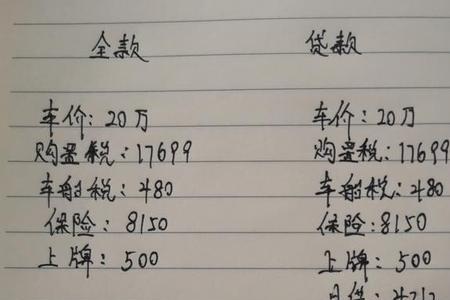 全款 贷款
车价：20万 车价：20万
购置税：17699 购置税：17699
车船税：480 车船税：480
保险：8150 保险：8150
上牌：500 上牌：500